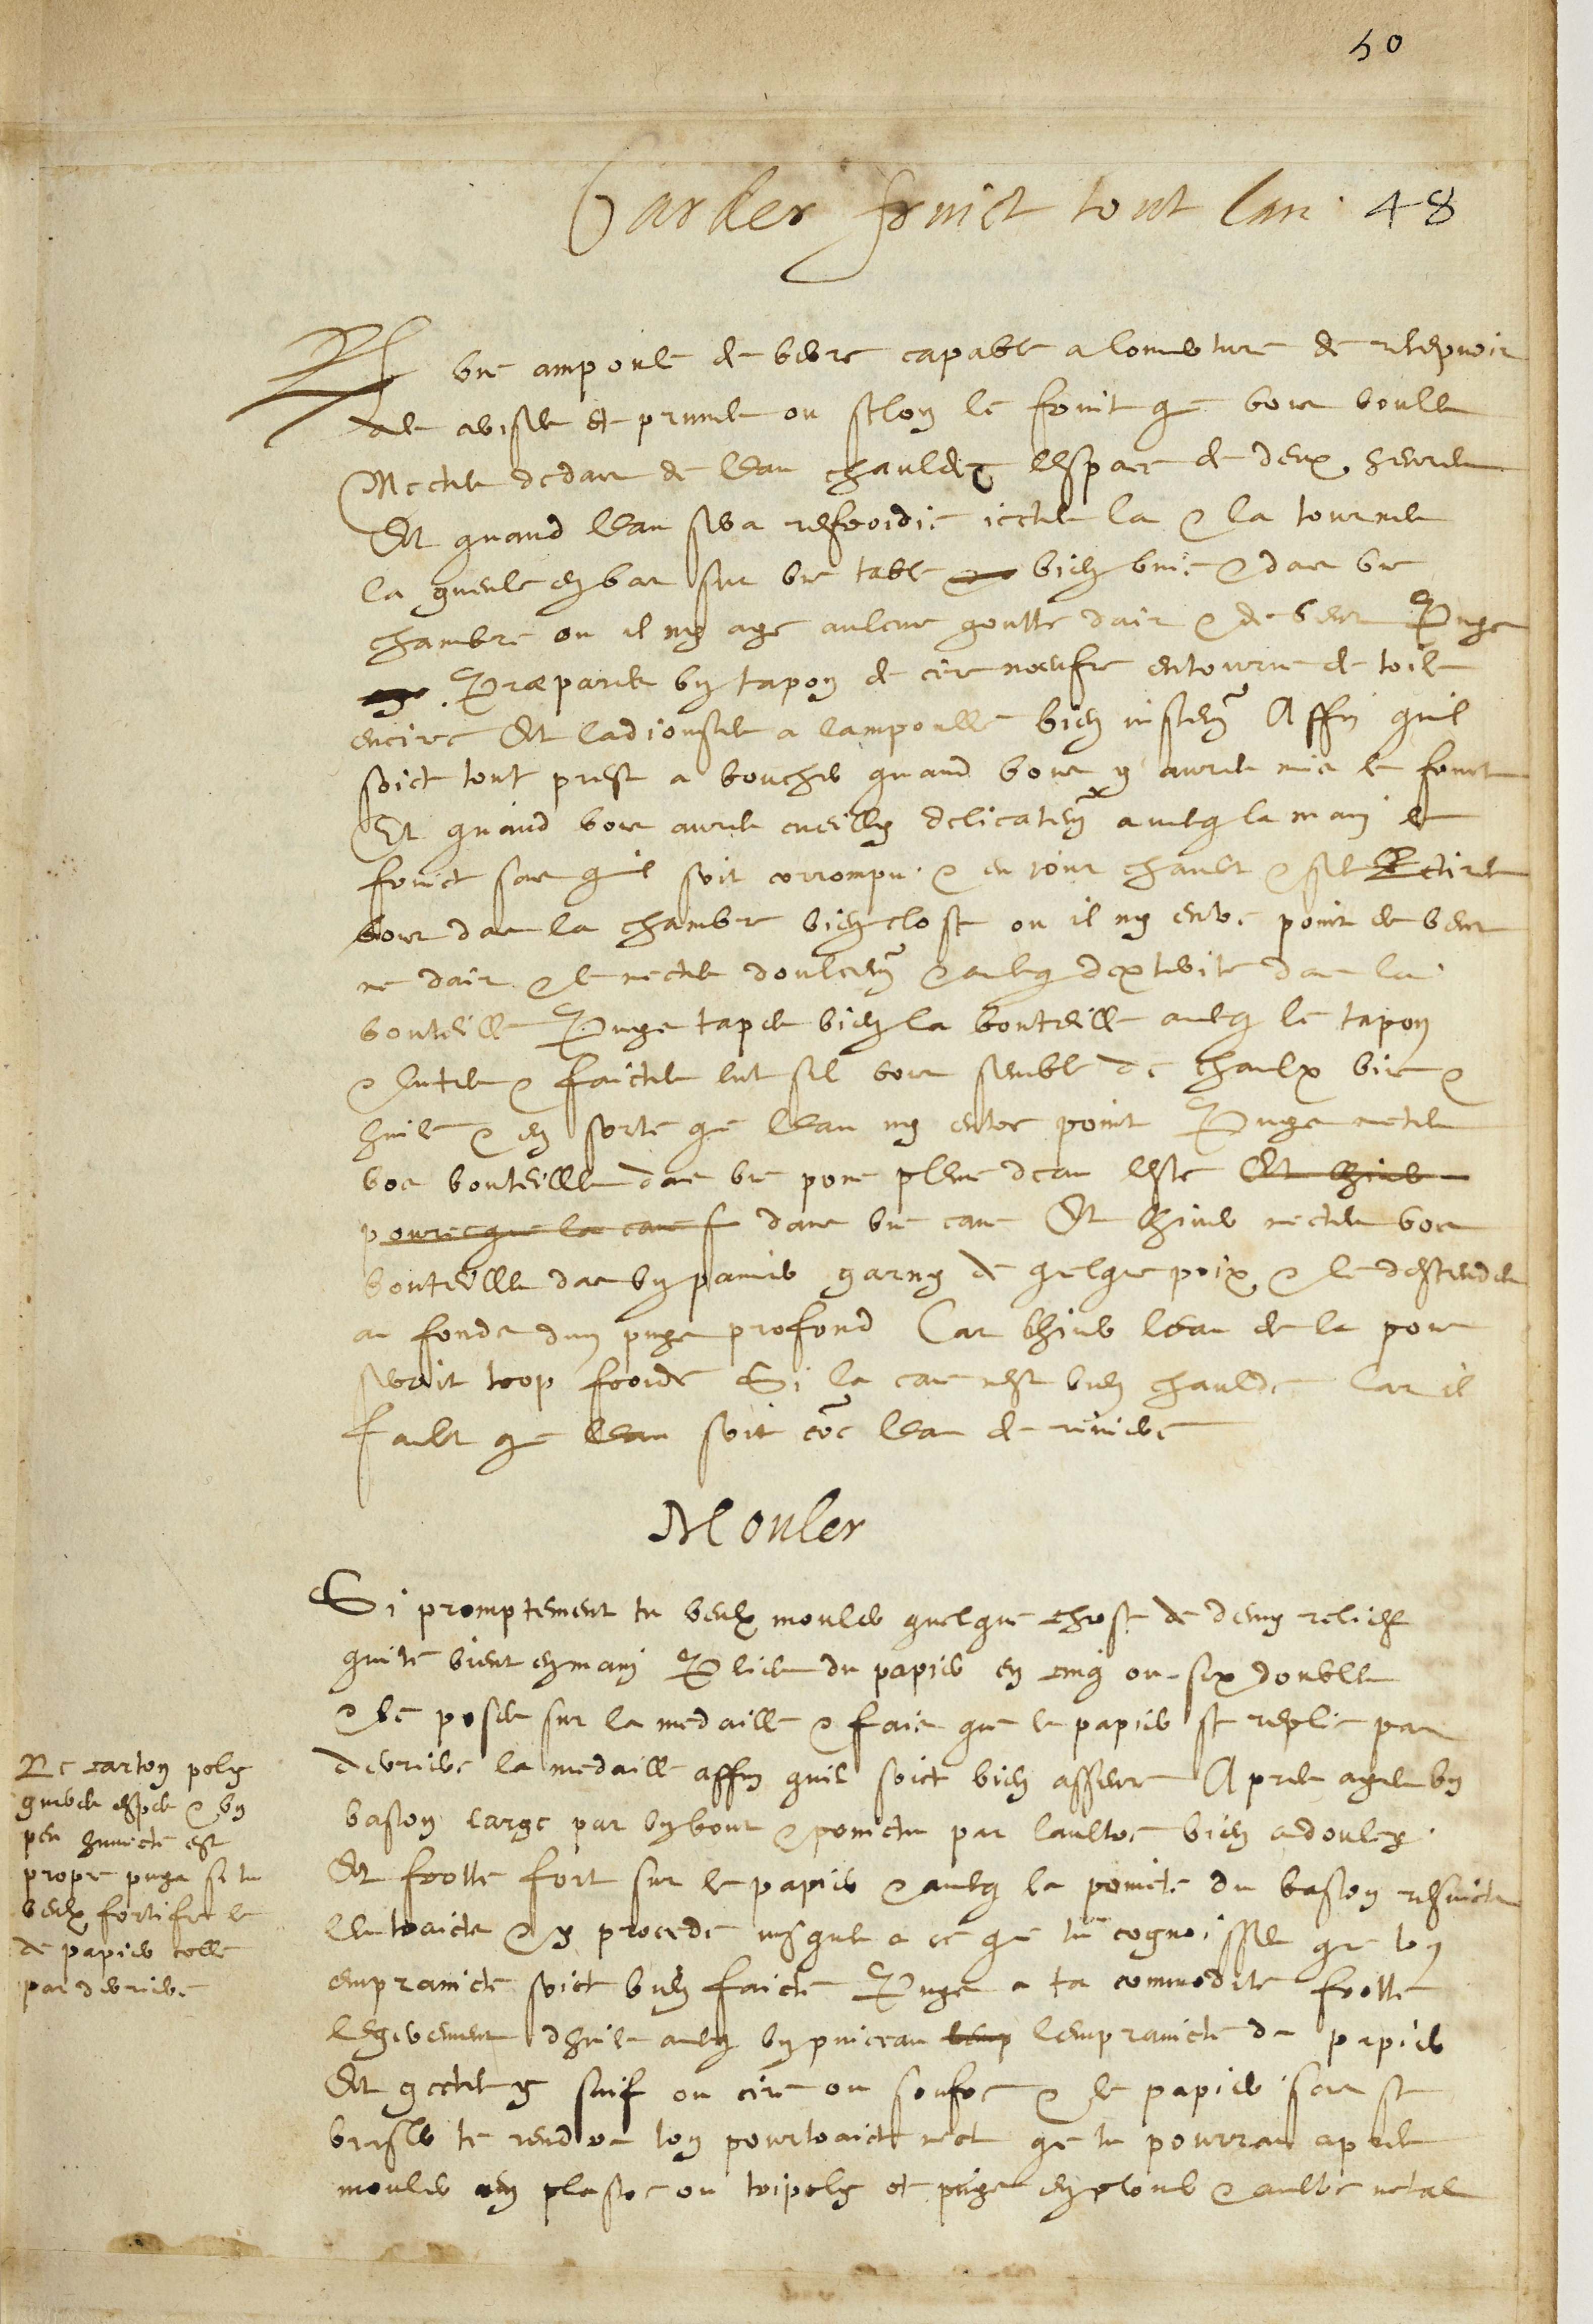 50
Garder fruict tout lan 48
℞ une ampoule de verre capable a louverture de recepvoir
des cerises et prunes ou selon le fruit que vous voules
Mectes dedans de leau chaulde lespace de deux heures
Et quand leau sera refroidie jectes la & la tournes
la gueule en bas sur une table bien unie & dans une
chambre ou il ny aye aulcune goutte dair & de vent Puys
Præparés un tapon de cire neufve entourné de toile
encirée Et ladjoustes a lampoulle bien justem{ent} Affin quil
soict tout prest a boucher quand vous y aures mis le fruit
Et quand vous aures cueilly delicatem{ent} avecq la main le
fruict sans quil soit corrompu & en jour chault & sec Retires
vous dans la chambre bien close ou il ny entre point de vent
ne dair & le mectes doulcem{ent} & avecq dexterité dans la
bouteille Puys tapés bien la bouteille avecq le tapon
& lutes & faictes lut sil vous semble de chaulx vive &
huile & en sorte que leau ny entre point Puys mectes
vos bouteilles dans une pone pleine deau leste Et lhiver
pource que la cave f dans une cave Et lhiver mectes vos
bouteilles dans un panier garny de quelque poix & le descendes
au fonds dun puys profond Car lhiver leau de la pone
seroit trop froide Si la cave nest bien chaulde Car il
fault que leau soit co{mm}e leau de riviere
Mouler
Si promptement tu veulx mouler quelque chose de demy relief
qui te vient en main Plies du papier en cinq ou six doubles
& le poses sur la medaille & fais que le papier se replie par
derriere la medaille affin quil soict bien asseuré Apres ayes un
baston large par un bout & poinctu par laultre bien adoulcy
Et frotte fort sur le papier & avecq la poincte du baston resuicts
les traicts & y procede jusques a ce que tu cognoisses que ton
emprainte soict bien faicte Puys a ta commodité frotte
legerement dhuile avecq un pinceau lemp lempraincte de papier
Et gectes y suif ou cire ou soufre & le papier sans se
brusler te rendra ton pourtraict nect que tu pourras apres
mouler en plastre ou tripoly et puys en plomb & aultre metal
Le carton poly
gueres espes & un
peu humecté est
propre puys si tu
veulx fortifie le
de papier collé
par derriere